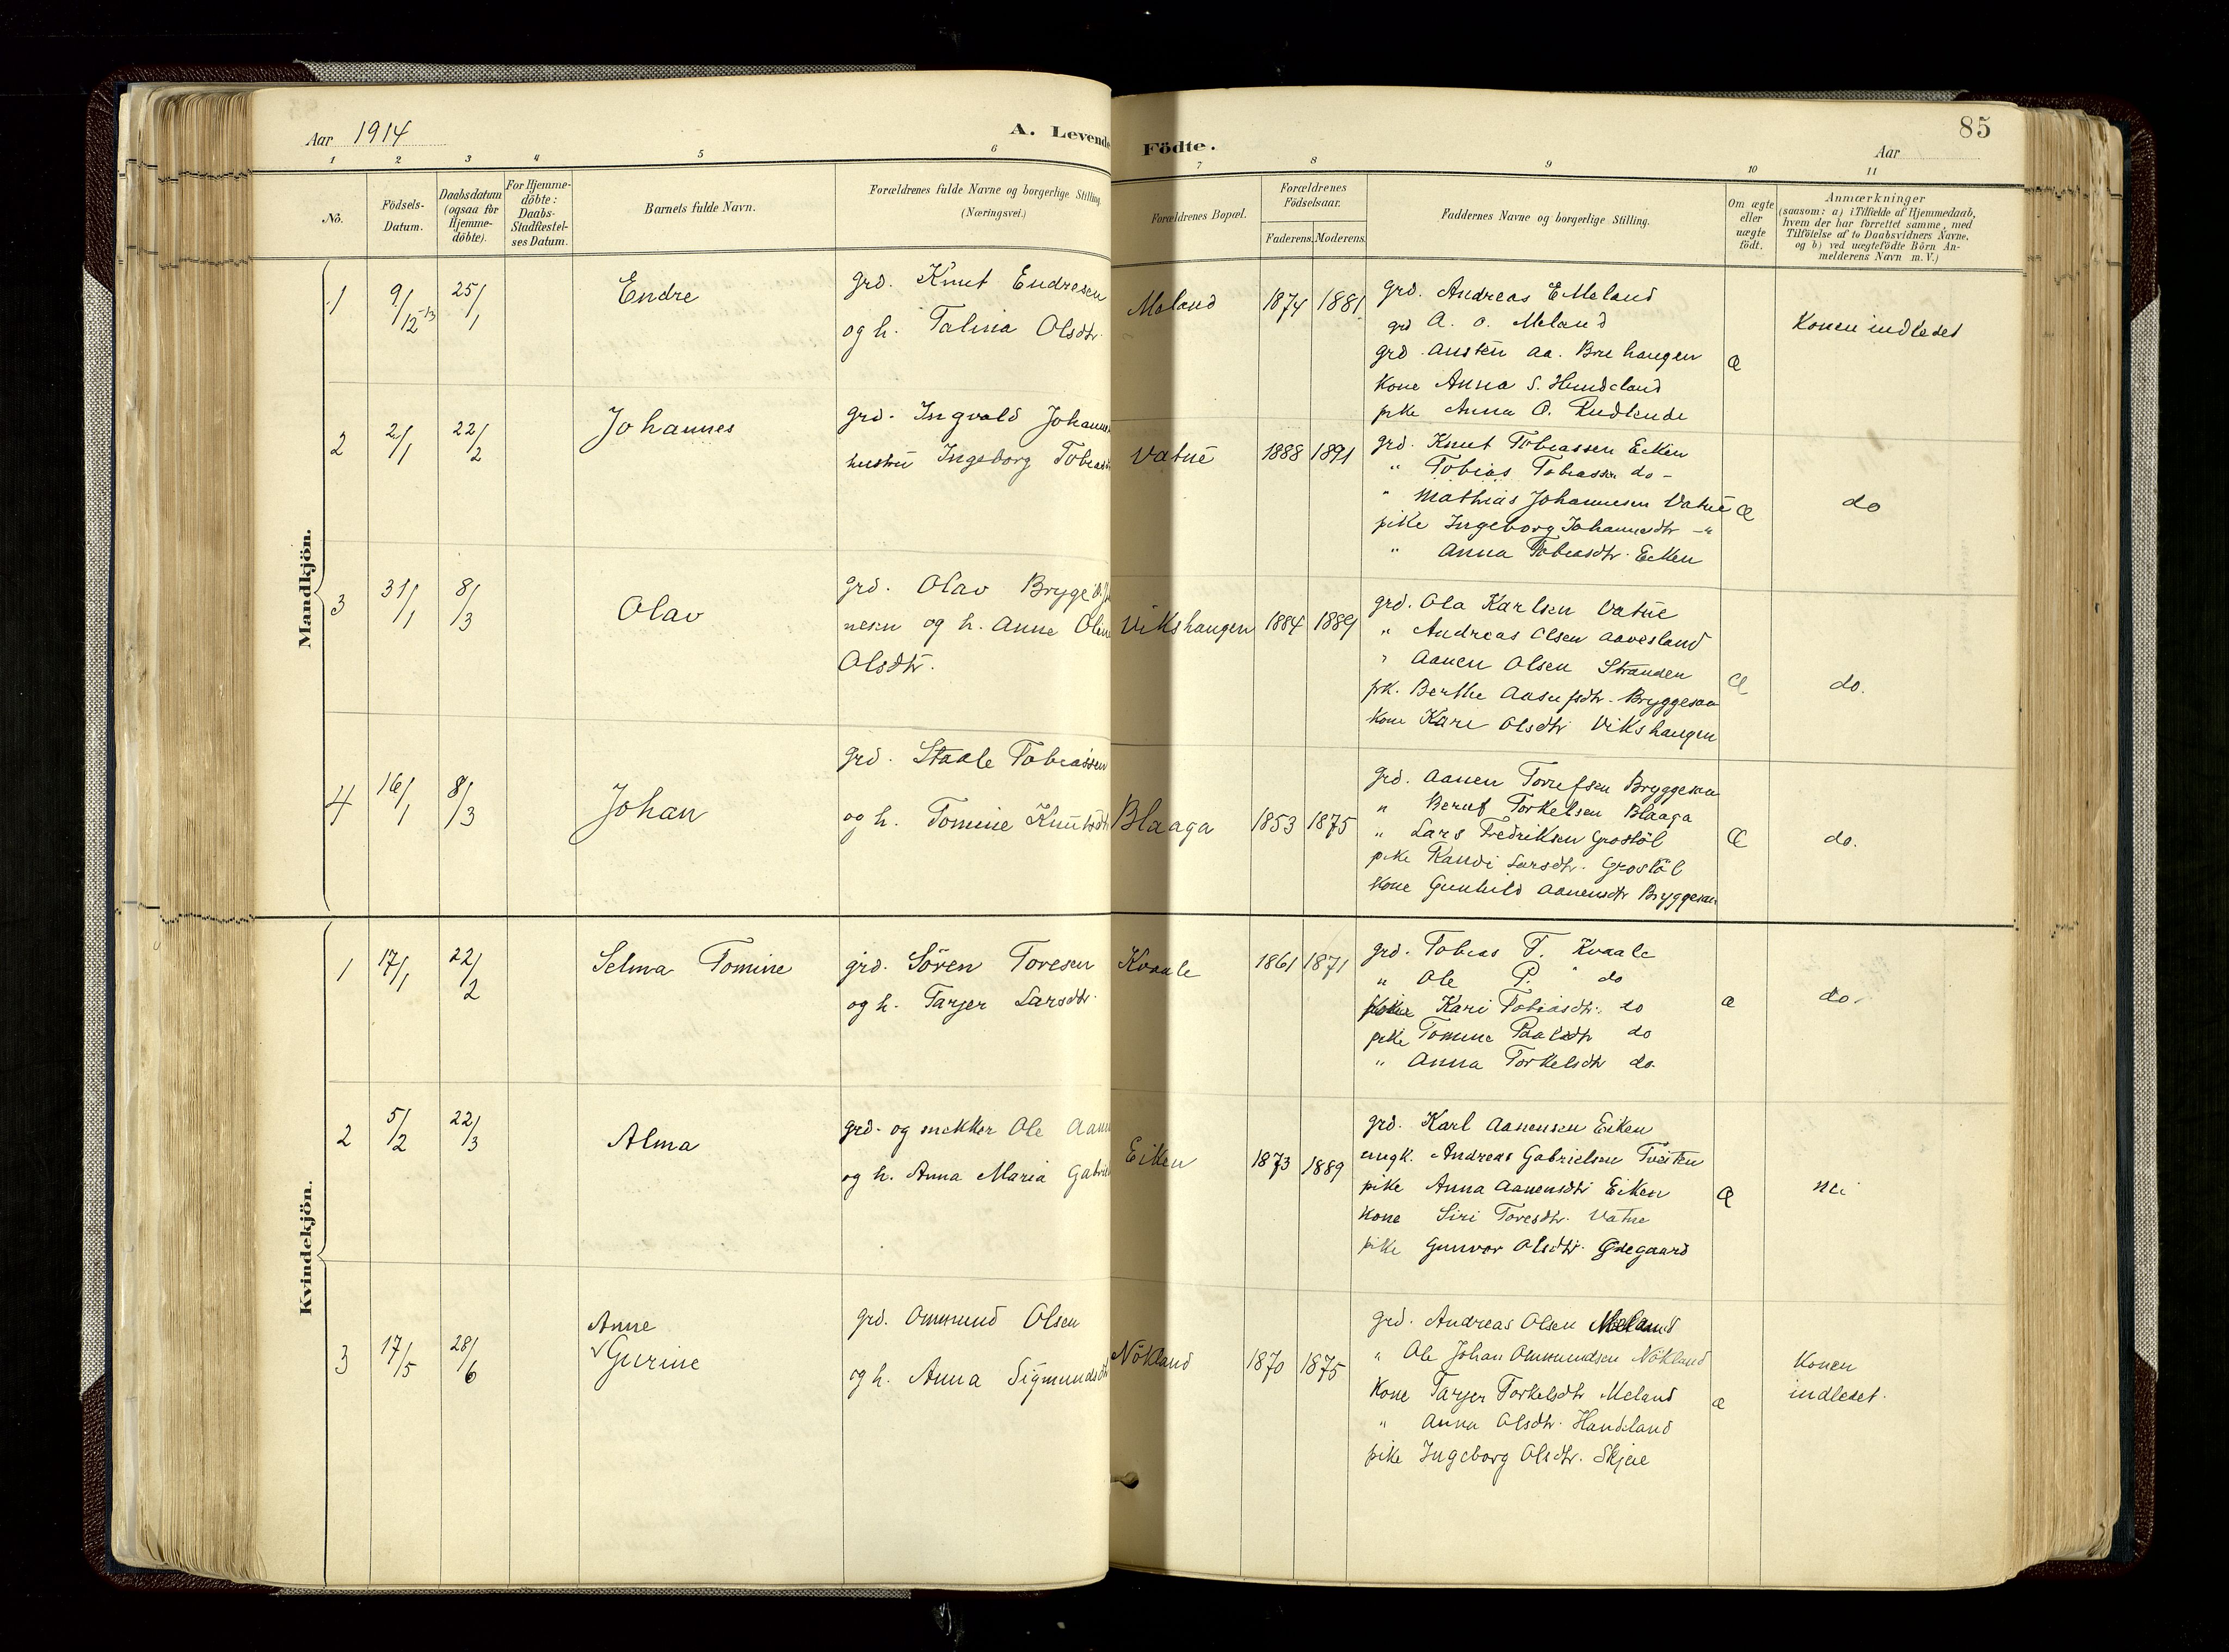 Aar 1914
A. Levende Födte.
85
Aar
1 2 3 4 5 6 7 8 9 10 11
No.
Födsels-
Datum.
Daabsdatum
(ogsaa for
Hjemme-
döbte).
For Hjemme-
döbte:
Daabs-
Stadfæstel-
ses Datum.
Barnets fulde Navn.
Forældrenes fulde Navne og borgerlige Stilling
(Næringsvei.)
Forældrenes Bopæl.
Forældrenes
Födselsaar.
Faderens. Moderens.
Faddernes Navne og borgerlige Stilling.
Om ægte
eller
uægte
födt.
Anmærkninger
(saasom: a) i Tilfælde af Hjemmedaab,
hvem der har forrettet samme, med
Tilföielse af to Daabsvidners Navne,
og b) ved uægtefödte Börn An-
melderens Navn m. V.)
Mandkjön.
1 9/12-13 25/1 Endre
grd. Knut Endresen
og h. Talina Olsdtr.
Meland 1874 1881
grd. Andreas E Meland
grd A. O. Meland
grd. Austen Aa. Brehaugen
Kone Anna S. Hundeland
pike Anna O. Rudlende
æ
Konen indledet
2 2/1 22/2 Johannes
grd. Ingvald Johann
hustru Ingeborg Tobiasd
Vatne 1888 1891
grd. Knut Tobiassen Eiken
" Tobias Tobiassen do -
" Mathias Johannesen Vatne
pike Ingeborg Johannesdtr - "
" Anna Tobiasdtr. Eiken
æ
do
3 31/1 8/3 Olav
grd. Olav Brygge
nesen og h. Anne Olin
Olsdtr.
Vikshaugen 1884 1889
grd. Ola Karlsen Vatne
" Andreas Olsen Aavesland
" Aanen Olsen Stranden
pk. Berthe Aasulfsdtr. Bryggesaa
Kone Kari Olsdtr Vikshaugen
æ
do.
4 16/1 8/3 Johan
grd. Staale Tobiassen
og h. Tomine Knutsdtr
Blaaga 1853 1875
grd. Aanen Torrefsen Bryggesaa
" Berulf Torkelsen Blaaga
" Lars Fredriksen Grostöl
pike Randi Larsdtr. Grostöl
Kone Gunhild Aanensdtr Bryggesaa
Æ
do.
Kvindekjön.
1 17/1 22/2 Selma Tomine
grd. Sören Toresen
og h. Tarjer Larsdtr.
Kvaale 1861 1871
grd. Tobias T. Kvaale
" Ole P. " do
Kari Tobiasdtr. do
pike Tomine Paalsdtr do
" Anna Torkelsdtr do.
æ
do.
2 5/2 22/3 Alma
grd. og snekker Ole Aanen
og h. Anna Maria Gabriel
Eiken 1873 1889
grd. Karl Aanensen Eiken
ungk. Andreas Gabrielsen Tveiten
pike Anna Aanensdtr Eiken
Kone Siri Toresdtr. Vatne
pike Gunvor Olsdtr. Ødegaard
Æ
nei
3 17/5 28/6 Anne
Gurine
grd. Ommund Olsen
og h. Anna Sigmundsdtr
Nökland 1870 1875
grd. Andreas Olsen Meland
" Ole Johan Ommundsen Nökland
Kone Tarjer Torkelsdtr Meland
" Anna Olsdtr. Handeland
pike Ingeborg Olsdtr. Skjeie
æ
Konen
indledet.